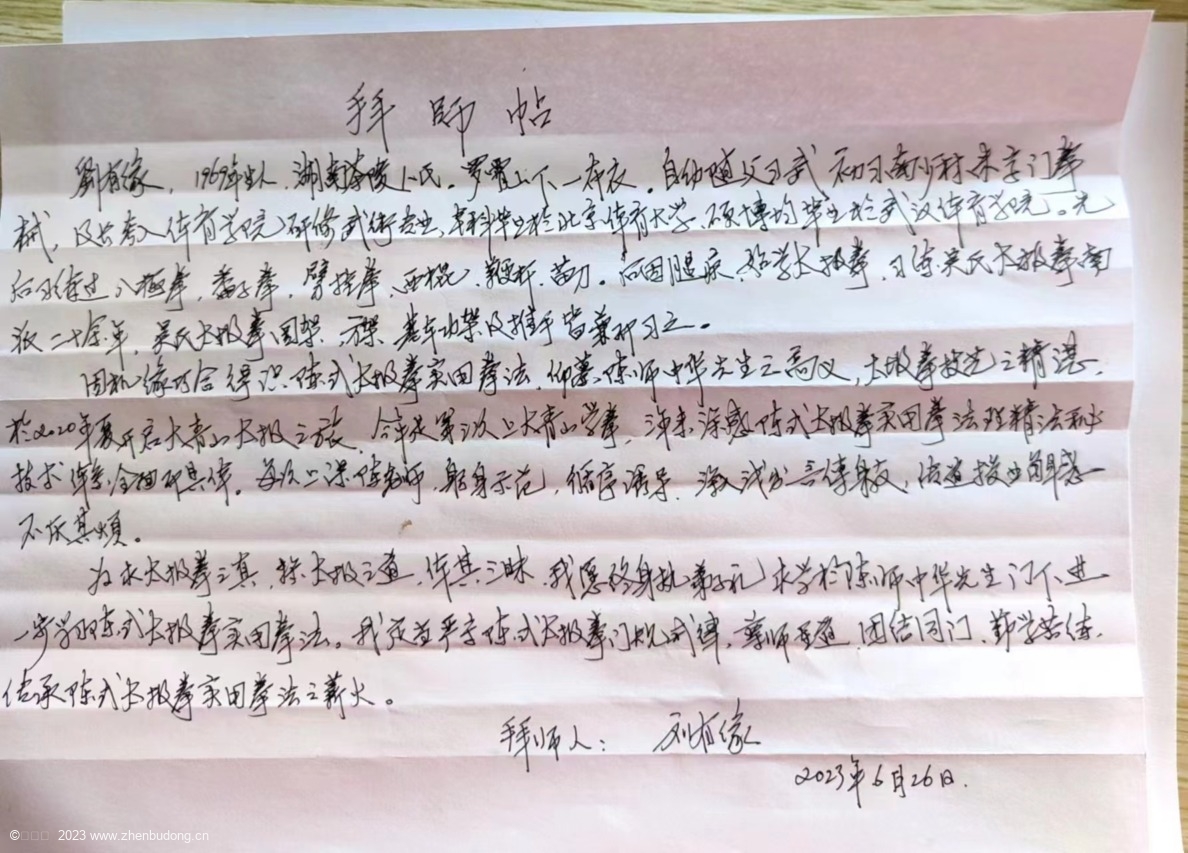 拜师帖
劉有缘，1969年生人，湖南茶陵人氏。罗霄山下一布衣。自幼随父习武，初习南少林朱字门拳
械，及长考入体育学院研修武术专业，本科毕业于北京体育大学、硕博均毕业于武汉体育学院。先
后习练过八极拳，番子拳，劈挂拳，西棍、鞭杆、苗刀。后因腿疾，始学太极拳，习练吴氏太极拳南
派二十余年，吴氏太极拳圆架、方架、及推手皆兼而习之。
因机缘巧合得识陈式太极拳实用拳法，仰慕陈师中华先生之高义，太极拳技艺之精湛，
于2020年夏开启大青山太极之旅，今年是第三次上大青山学拳，深感陈式太极拳实用拳法理精法和
技术体系全面而具体。每次上课陈老师，躬身示范，循序诱导，深入浅出言传身教，解惑
不厌其烦。
为求太极拳之真，探太极之道，体其三昧，我愿终身执弟子礼，求学于陈师中华先生门下，进
一步学习陈式太极拳实用拳法。我定当严守陈式太极拳门规戒律，尊师重道，团结同门，勤学苦练，
传承陈式太极拳实用拳法之薪火。
拜师人：刘有缘
2023年6月26日.
© 2023 www.zhenbudong.cn